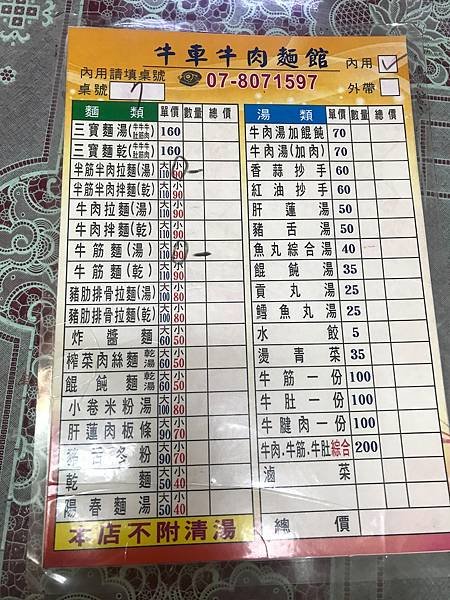 牛車牛肉麵館
內用請填桌號 ☎07-8071597 內用 ✓
桌號 7 外帶
麵類 單價 數量 總價
三寶麵湯(牛牛牛肚筋肉) 160
三寶麵乾(牛牛牛肚筋肉) 160
半筋半肉拉麵(湯) 大110 小90
半筋半肉拌麵(乾) 大110 小90
牛肉拉麵(湯) 大110 小90
牛肉拌麵(乾) 大110 小90
牛筋麵(湯) 大110 小90
牛筋麵(乾) 大110 小90
豬肋排骨拉麵(湯) 大100 小80
豬肋排骨拉麵(乾) 大100 小80
炸醬麵 大60 小50
榨菜肉絲麵 乾湯 大60 小50
餛飩麵 乾湯 大60 小50
小卷米粉湯 大100 小80
肝蓮肉板條 大90 小70
豬舌冬粉 大90 小70
乾麵 大50 小40
陽春麵湯 大50 小40
本店不附清湯
湯類 單價 數量 總價
牛肉湯加餛飩 70
牛肉湯(加肉) 70
香蒜抄手 60
紅油抄手 60
肝蓮湯 50
豬舌湯 50
魚丸綜合湯 40
餛飩湯 35
貢丸湯 25
鱈魚丸湯 25
水餃 5
燙青菜 35
牛筋一份 100
牛肚一份 100
牛腱肉一份 100
牛肉.牛筋.牛肚綜合 200
滷菜
總價